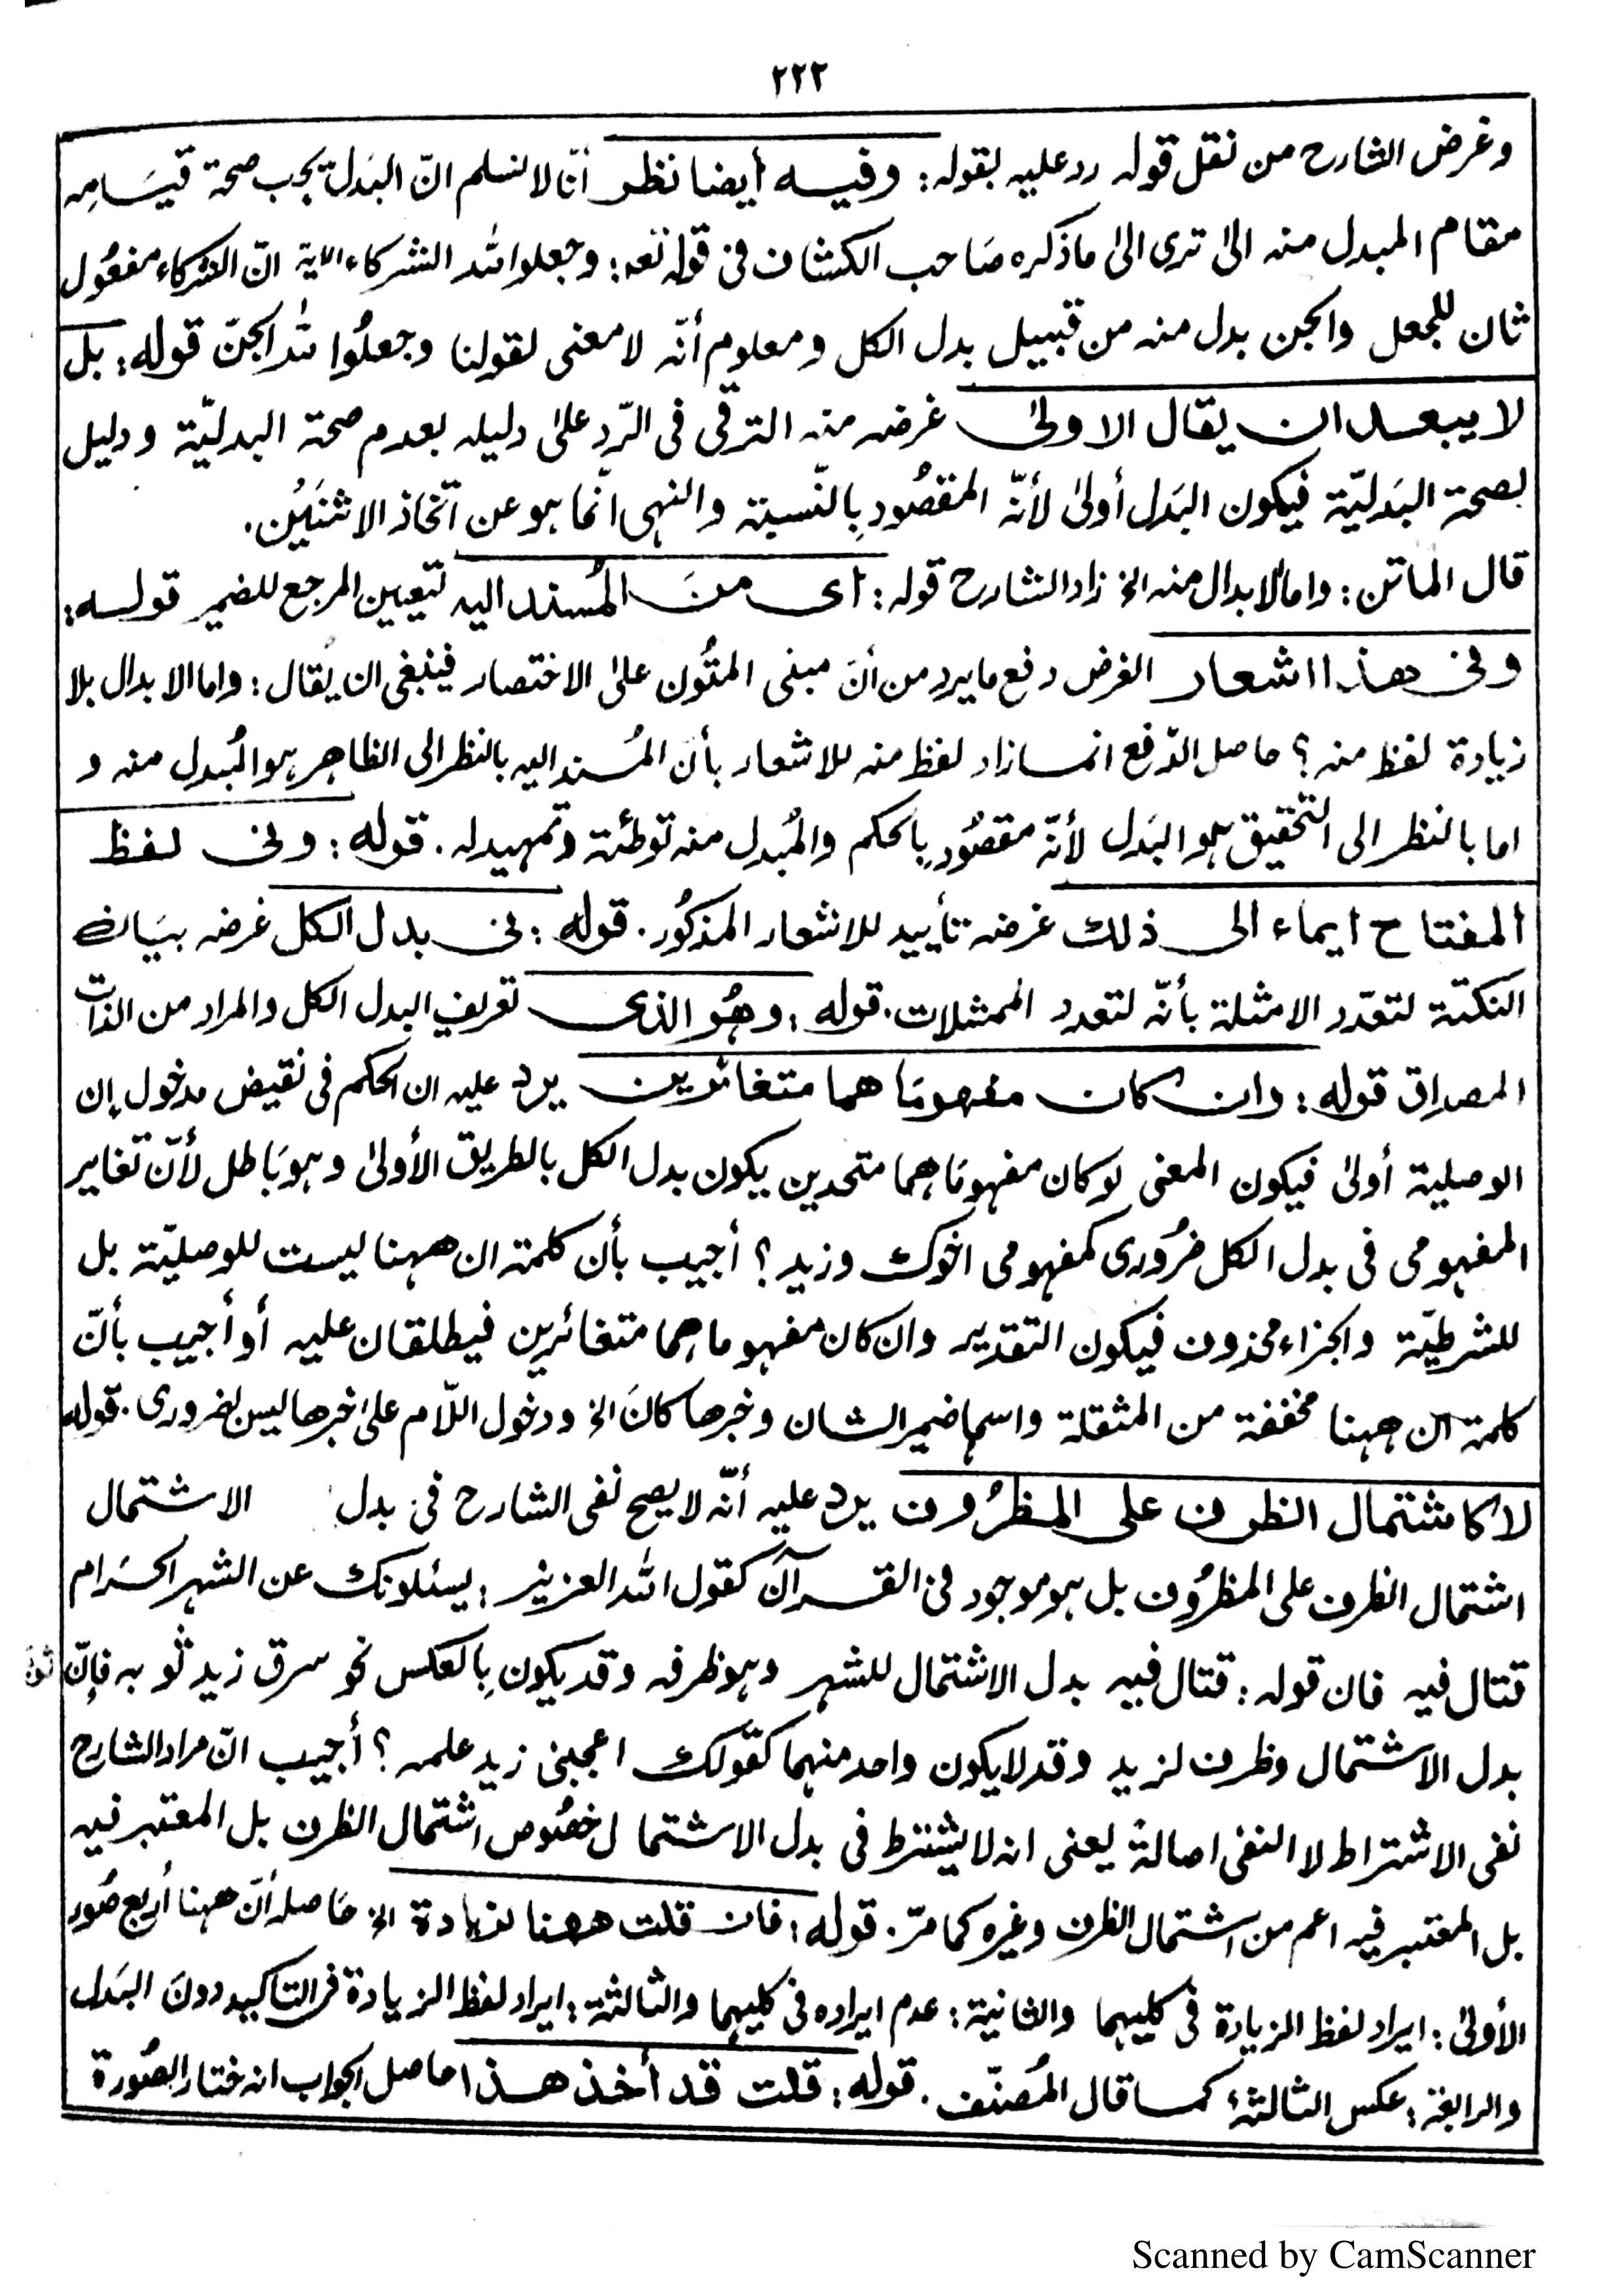 ٢٢٢
وغرض الشارح من نقل قوله رد عليه بقوله: وفيه أيضا نظر أنّا لا نسلم انّ البَدل يجب صحة قيَامِه
مقام المبدل منه الىٰ ترى الىٰ ما ذكره صَاحب الكشاف فى قوله تعه: وجعلوا لله الشركاء الآية انّ الشركاء مفعُول
ثان للجعل والجن بدل منه من قبيل بدل الكل ومعلوم أنّه لا معنى لقولنا وجعلُوا لله الجنّ قوله: بل
لا يبعد ان يقال الاولىٰ غرضه منه الترقى فى الرّد علىٰ دليله بعدم صحة البدليّة ودليل
بصحة البَدليّة فيكون البَدل أولىٰ لأنّه المقصُود بِالنّسبة والنهى انّما هو عن اتّخاذ الاثنَيُن.
قال الماتن: واما الابدال منه الخ زاد الشارح قوله: أى منَ المُسند اليه لتعيين المرجع للضمير قوله:
وفى هذا اشعار الغرض دفع ما يرد من أنَ مبنى المتُون علىٰ الاختصار فينبغى ان يُقال: واما الابدال بلا
زيادة لفظ منه؟ حاصل الدّفع انما زاد لفظ منه للاشعار بأن المُسند اليه بالنظر الى الظاهر هو المُبدل منه و
اما بالنظر الى التحقيق هو البَدل لأنّه مقصُود بِالحكم والمُبدل منه توطئة وتمهيد له. قوله: وفى لفظ
المفتاح ايماء الى ذلك غرضه تأييد للاشعار المذكُور. قوله: فى بدل الكل غرضه بيَان
النكتة لتعدّد الامثلة بأنّه لتعدد الممثلات. قوله: وهُو الذى تعريف البدل الكل والمراد من الذات
المصداق قوله: وان كان مفهومَا هما متغائرين يرد عليه ان الحكم فى نقيض مدخول إن
الوصلية أولىٰ فيكون المعنى لو كان مفهومَا هما متحدين يكون بدل الكل بالطريق الأولىٰ وهو بَاطل لأنّ تغاير
المفهومى فى بدل الكل ضرُورى كمفهومى اخوك وزيد؟ أجيب بأن كلمة ان ههنا ليست للوصليّة بل
للشرطيّة والجزاء محذوف فيكون التقدير وان كان مفهوما هما متغائرين فيطلقان عليه أو أجيب بأنّ
كلمة ان ههنا مخففة من المثقلة واسمها ضمير الشان وخبرها كانَ الخ ودخول اللّام علىٰ خبرها ليس لضرورى. قوله
لا كاشتمال الظرف على المظرُوف يرد عليه أنّه لا يصح نفى الشارح فى بدل الاشتمال
اشتمال الظرف على المظرُوف بل هو موجود فى القرآن كقول الله العزيز: يسئلونك عن الشهر الحَرام
قتال فيه فان قوله: قتال فيه بدل الاشتمال للشهر وهو ظرفه وقد يكون بِالعكس نحو سرق زيد ثوبه فإنّ ثوبه
بدل الاشتمال وظرف لزيد وقد لا يكون واحد منهما كقولك اعجبنى زيد علمه؟ أجيب انّ مراد الشارح
نفى الاشتراط لا النفى اصالةً يعنى انه لا يشترط فى بدل الاشتمال خصُوص اشتمال الظرف بل المعتبر فيه
بل المعتبر فيه اعم من اشتمال الظرف وغيره كما مرّ. قوله: فان قلت ههنا لزيادة الخ حَاصله أنّ ههنا أربع صُور
الأولىٰ: ايراد لفظ الزيادة فى كليهما والثانية: عدم ايراده فى كليهما والثالثة: ايراد لفظ الزيادة فى التاكيد دونَ البَدل
والرابعة: عكس الثالثة كما قال المُصنّف. قوله: قلت قد أخذ هذا حاصل الجواب انه ختار الصُورة
Scanned by CamScanner